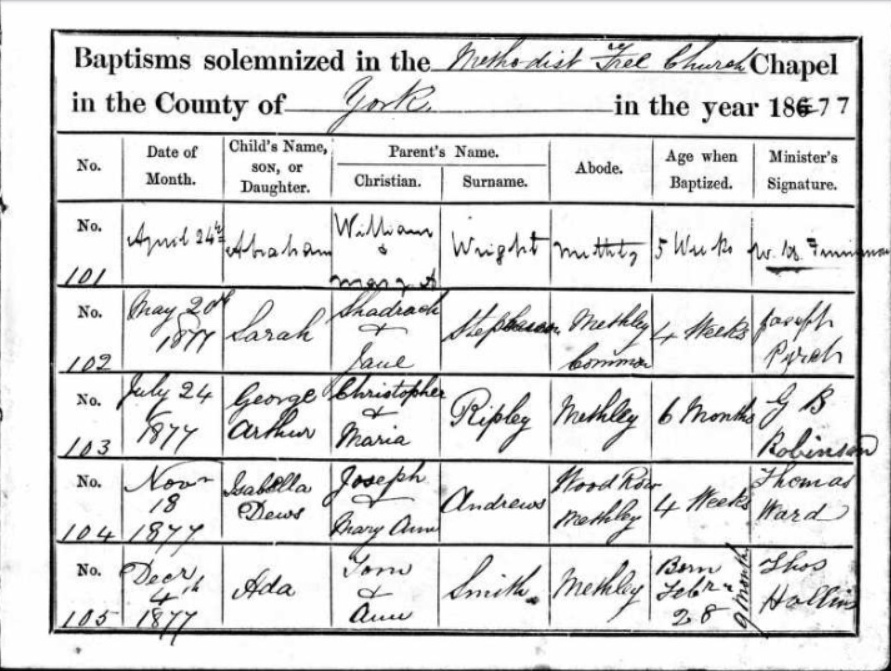 Baptisms solemnized in the Methodist Free Church Chapel
in the County of York. in the year 1877
No. Date of Month. Child's Name, son, or Daughter. Parent's Name. Christian. Surname. Abode. Age when Baptized. Minister's Signature.
No. 101 April 24th Abraham William & Mary A Wright Methley 5 Weeks W. H.
No. 102 May 20th 1877 Sarah Shadrach & Jane Stephenson Methley Common 4 Weeks Joseph
No. 103 July 24 1877 George Arthur Christopher & Maria Ripley Methley 6 Months G B Robinson
No. 104 Novr 18 1877 Isabella Dews Joseph & Mary Ann Andrews Wood Row Methley 4 Weeks Thomas Ward
No. 105 Decr 4th 1877 Ada Tom & Ann Smith. Methley Born Febr 28 9 Months Thos Hollins